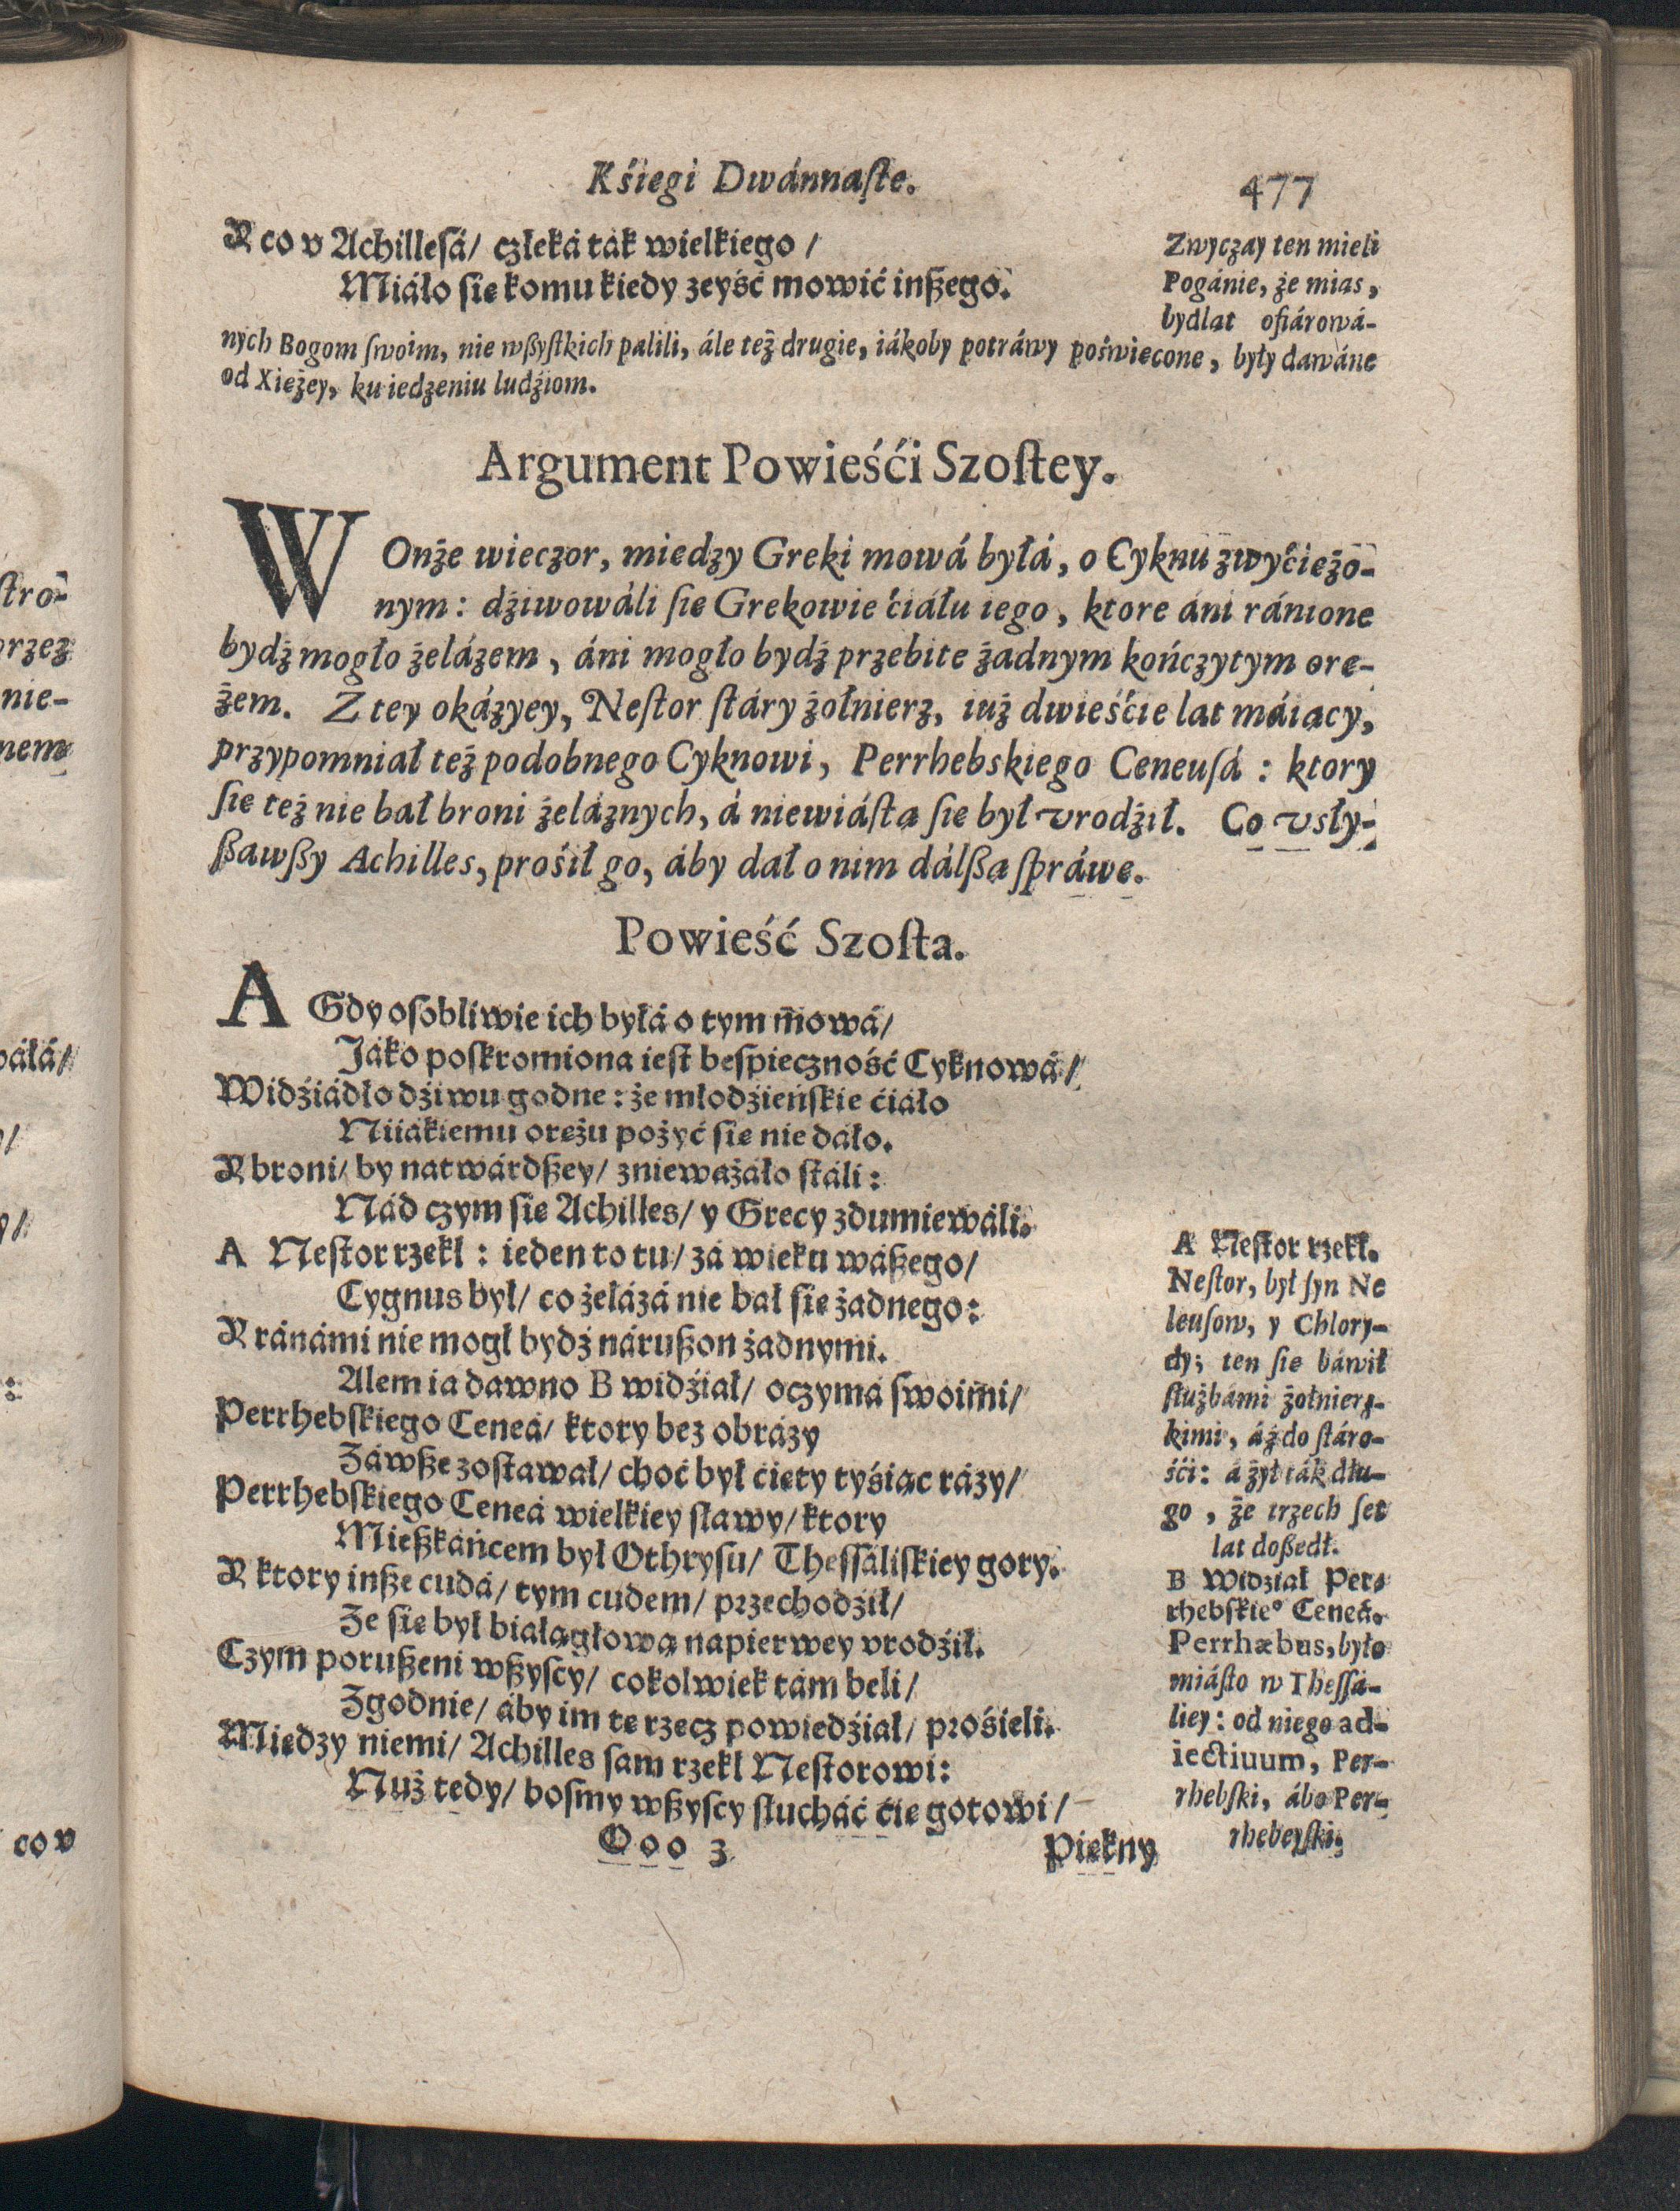 Kśiegi Dwánnaſte.
477
A co v Achilleſá/ człeká ták wielkiego/
Miáło ſie komu kiedy zeyść mowić inßego.
Zwyczay ten mieli
Pogánie, że mias,
bydlat ofiárowá-
nych Bogom ſwoim, nie wßyſtkich palili, ále też drugie, iákoby potráwy poświecone, były dawáne
od Xieżey, ku iedzeniu ludźiom.
Argument Powieśći Szoſtey.
W Onże wieczor, miedzy Greki mowá byłá, o Cyknu zwyćieżo-
nym: dźiwowáli ſie Grekowie ćiáłu iego, ktore áni ránione
bydź mogło żelázem, áni mogło bydź przebite żadnym kończytym ore-
żem. Z tey okázyey, Neſtor ſtáry żołnierz, iuż dwieśćie lat máiacy,
przypomniał też podobnego Cyknowi, Perrhebskiego Ceneuſá: ktory
ſie też nie bał broni żeláznych, á niewiáſtą ſie był vrodźił. Co vsły-
ßawßy Achilles, prośił go, áby dał o nim dálßą ſpráwe.
Powieść Szoſta.
A Gdy oſobliwie ich byłá o tym mowá/
Jáko poſkromiona ieſt beſpieczność Cyknowá/
Widźiádło dźiwu godne: że młodźieńſkie ćiáło
Niiákiemu orężu pożyć ſie nie dáło.
A broni/ by natwárdßey/ znieważáło ſtáli:
Nád czym ſie Achilles/ y Grecy zdumiewáli.
A Neſtor rzekł: ieden to tu/ zá wieku wáßego/
Cygnus był/ co żelázá nie bał ſie żadnego:
A ránámi nie mogł bydź nárußon żadnymi.
Alem ia dawno B widźiał/ oczymá ſwoimi/
Perrhebſkiego Ceneá/ ktory bez obrázy
Záwße zoſtawał/ choć był ćięty tyśiąc rázy/
Perrhebſkiego Ceneá wielkiey ſławy/ ktory
Mießkáńcem był Othryſu/ Theſſáliſkiey gory.
A ktory inße cudá/ tym cudem/ przechodźił/
Że ſie był białągłową napierwey vrodźił.
Czym porußeni wßyſcy/ cokolwiek tám beli/
Zgodnie/ áby im tę rzecz powiedźiał/ prośieli.
Miedzy niemi/ Achilles ſam rzekł Neſtorowi:
Nuż tedy/ boſmy wßyſcy ſłucháć ćie gotowi/
A Neſtor rzekł.
Neſtor, był ſyn Ne
leuſow, y Chlory-
dy; ten ſie báwił
ſłużbámi żołnierz-
kimi, áż do ſtáro-
śći: á żył ták dłu-
go, że trzech ſet
lat doßedł.
B Widźiał Per-
rhebſkie° Ceneá.
Perrhæbus, było
miáſto w Theſſa-
liey: od niego ad-
iectiuum, Per-
rhebſki, ábo Per-
rhebeyſki.
Ooo 3
Piekny
ſtro-
przez
nie-
nem
wáłá/
y/
:
co v